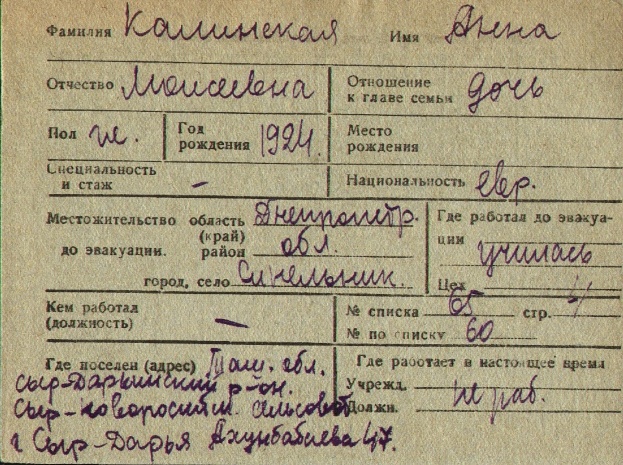 Фамилия Калинская Имя Анна
Отчество Моисеевна Отношение к главе семьи дочь
Пол ж. Год рождения 1924. Место рождения
Специальность и стаж — Национальность евр.
Местожительство область (край) Днепропетр.
до эвакуации. район обл.
город, село Синельник.
Где работал до эвакуации училась
Цех
Кем работал (должность) —
№ списка 65 стр. 4
№ по списку 60
Где поселен (адрес) Таш. обл.
Сыр-Дарьинский р-он.
Сыр-новоросийск. сельсовет
г Сыр-Дарья Ахунбабаева 47.
Где работает в настоящее время
Учрежд. не раб.
Должн.